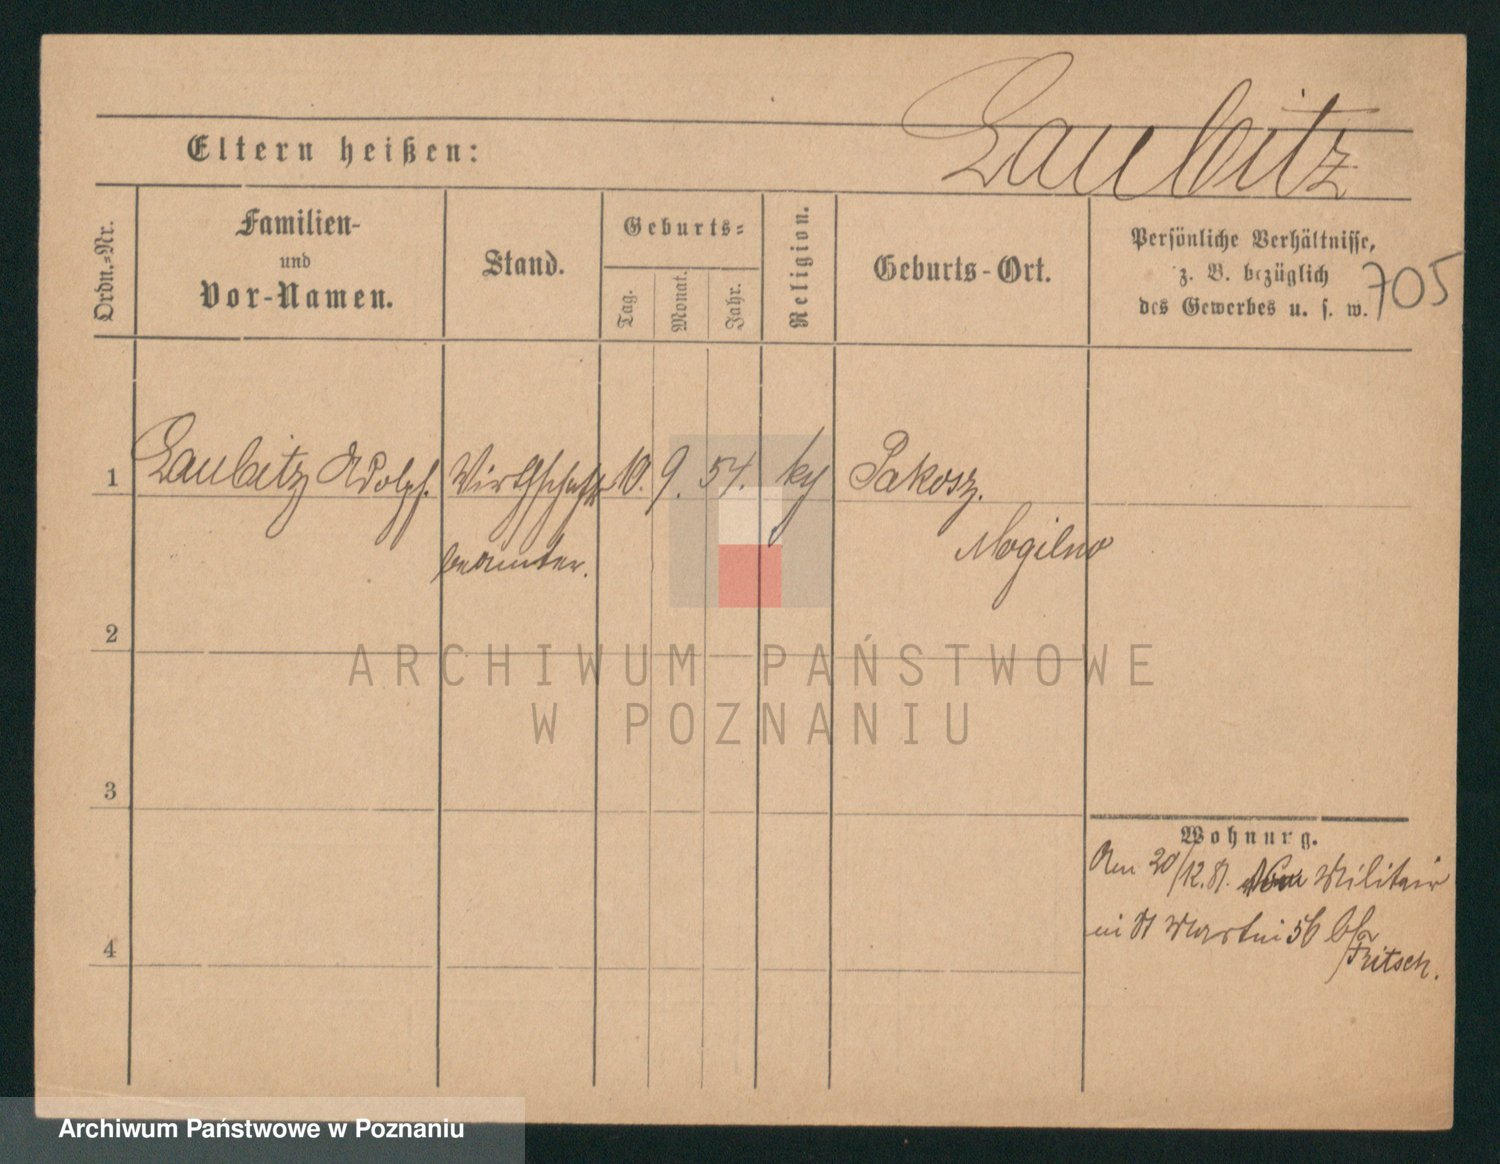 Laubitz
Eltern heißen:
Ordn.-Nr.
Familien-
und
Vor-Namen.
Stand.
Geburts-
Tag.
Monat.
Jahr.
Religion.
Geburts-Ort.
Persönliche Verhältnisse,
z. B. bezüglich
des Gewerbes u. s. w.
705
1 Laubitz Adolph. Wirthschafts 10. 9. 54. Pakosz.
beamter. Mogilno
2
3
4
Wohnung.
Am 20/12.81. Militair
St Martin 56 bei
Fritsch.
ARCHIWUM PAŃSTWOWE
W POZNANIU
Archiwum Państwowe w Poznaniu